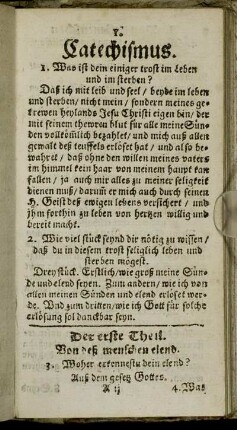 1.
Catechismus.
1. Was ist dein einiger trost im Leben
und im sterben?
Daß ich mit leib und seel / beyde im leben
und sterben / nicht mein / sondern meines ge-
trewen heylands Jesu Christi eigen bin / der
mit seinem thewren blut für alle meine Sün-
den vollkom̃lich bezahlet / und mich auß allem
gewalt deß teuffels erlöset hat / und also be-
wahret / daß ohne den willen meines vaters
im himmel kein haar von meinem haupt kan
fallen / ja auch mir alles zu meiner seligkeit
dienen muß / darum̃ er mich auch durch seinen
H. Geist deß ewigen lebens versichert / und
jhm forthin zu leben von hertzen willig und
bereit macht.
2. Wie viel stück seynd dir nötig zu wissen /
daß du in diesem trost seliglich leben und
sterben mögest.
Drey stück. Erstlich / wie groß meine Sün-
de und elend seyen. Zum andern / wie ich von
allen meinen Sünden und elend erlöset wer-
de. Und zum dritten / wie ich Gott für solche
erlösung sol danckbar seyn.
Der erste Theil.
Von deß menschen elend.
3. Woher erkennestu dein elend?
Auß dem gesetz Gottes.
A ij
4. Was